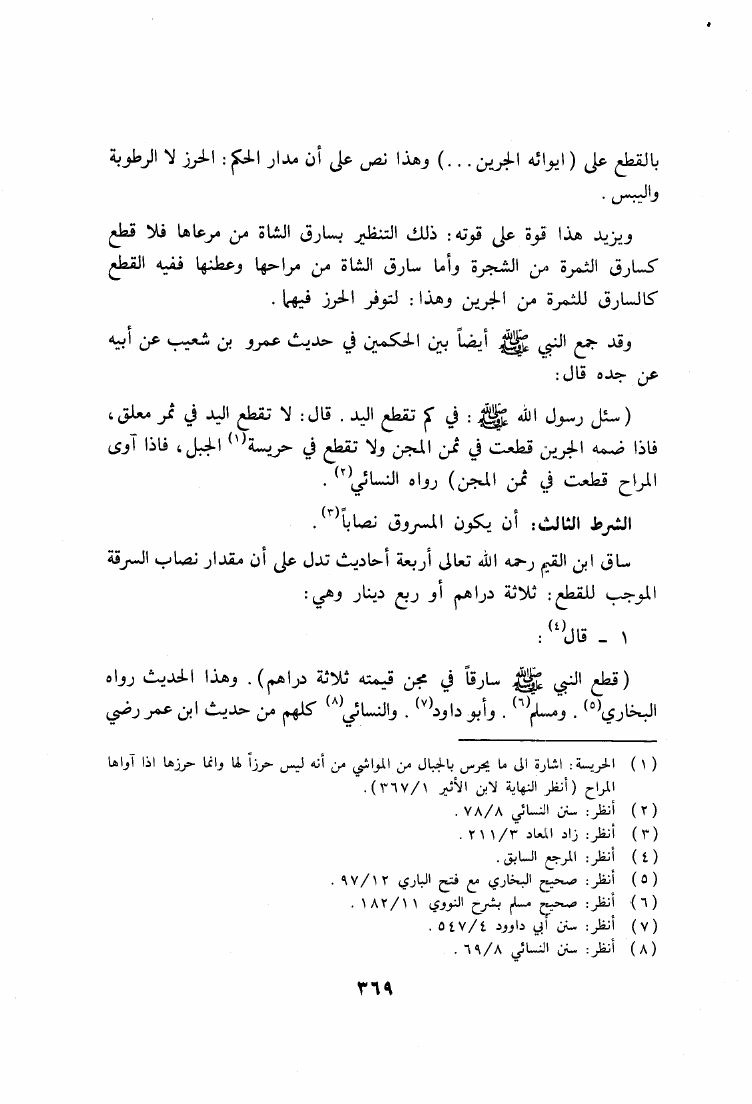 بالقطع على (ايوائه الجرين...) وهذا نص على أن مدار الحكم: الحرز لا الرطوبة
واليبس.
ويزيد هذا قوة على قوته: ذلك التنظير بسارق الشاة من مرعاها فلا قطع
كسارق الثمرة من الشجرة وأما سارق الشاة من مراحها وعطنها ففيه القطع
كالسارق للثمرة من الجرين وهذا: لتوفر الحرز فيهما.
وقد جمع النبي ﷺ أيضاً بين الحكمين في حديث عمرو بن شعيب عن أبيه
عن جده قال:
(سئل رسول الله ﷺ: في كم تقطع اليد. قال: لا تقطع اليد في ثمر معلق،
فاذا ضمه الجرين قطعت في ثمن المجن ولا تقطع في حريسة(١) الجبل، فاذا آوى
المراح قطعت في ثمن المجن) رواه النسائي(٢).
الشرط الثالث: أن يكون المسروق نصاباً(٣).
ساق ابن القيم رحمه الله تعالى أربعة أحاديث تدل على أن مقدار نصاب السرقة
الموجب للقطع: ثلاثة دراهم أو ربع دينار وهي:
١ - قال(٤):
(قطع النبي ﷺ سارقاً في مجن قيمته ثلاثة دراهم). وهذا الحديث رواه
البخاري(٥). ومسلم(٦). وأبو داود(٧). والنسائي(٨) كلهم من حديث ابن عمر رضي
(١) الحريسة: اشارة الى ما يحرس بالجبال من المواشي من أنه ليس حرزاً لها وانما حرزها اذا آواها
المراح (أنظر النهاية لابن الأثير ٣٦٧/١).
(٢) أنظر: سنن النسائي ٧٨/٨.
(٣) أنظر: زاد المعاد ٢١١/٣.
(٤) أنظر: المرجع السابق.
(٥) أنظر: صحيح البخاري مع فتح الباري ٩٧/١٢.
(٦) أنظر: صحيح مسلم بشرح النووي ١٨٢/١١.
(٧) أنظر: سنن أبي داوود ٥٤٧/٤.
(٨) أنظر: سنن النسائي ٦٩/٨.
٣٦٩